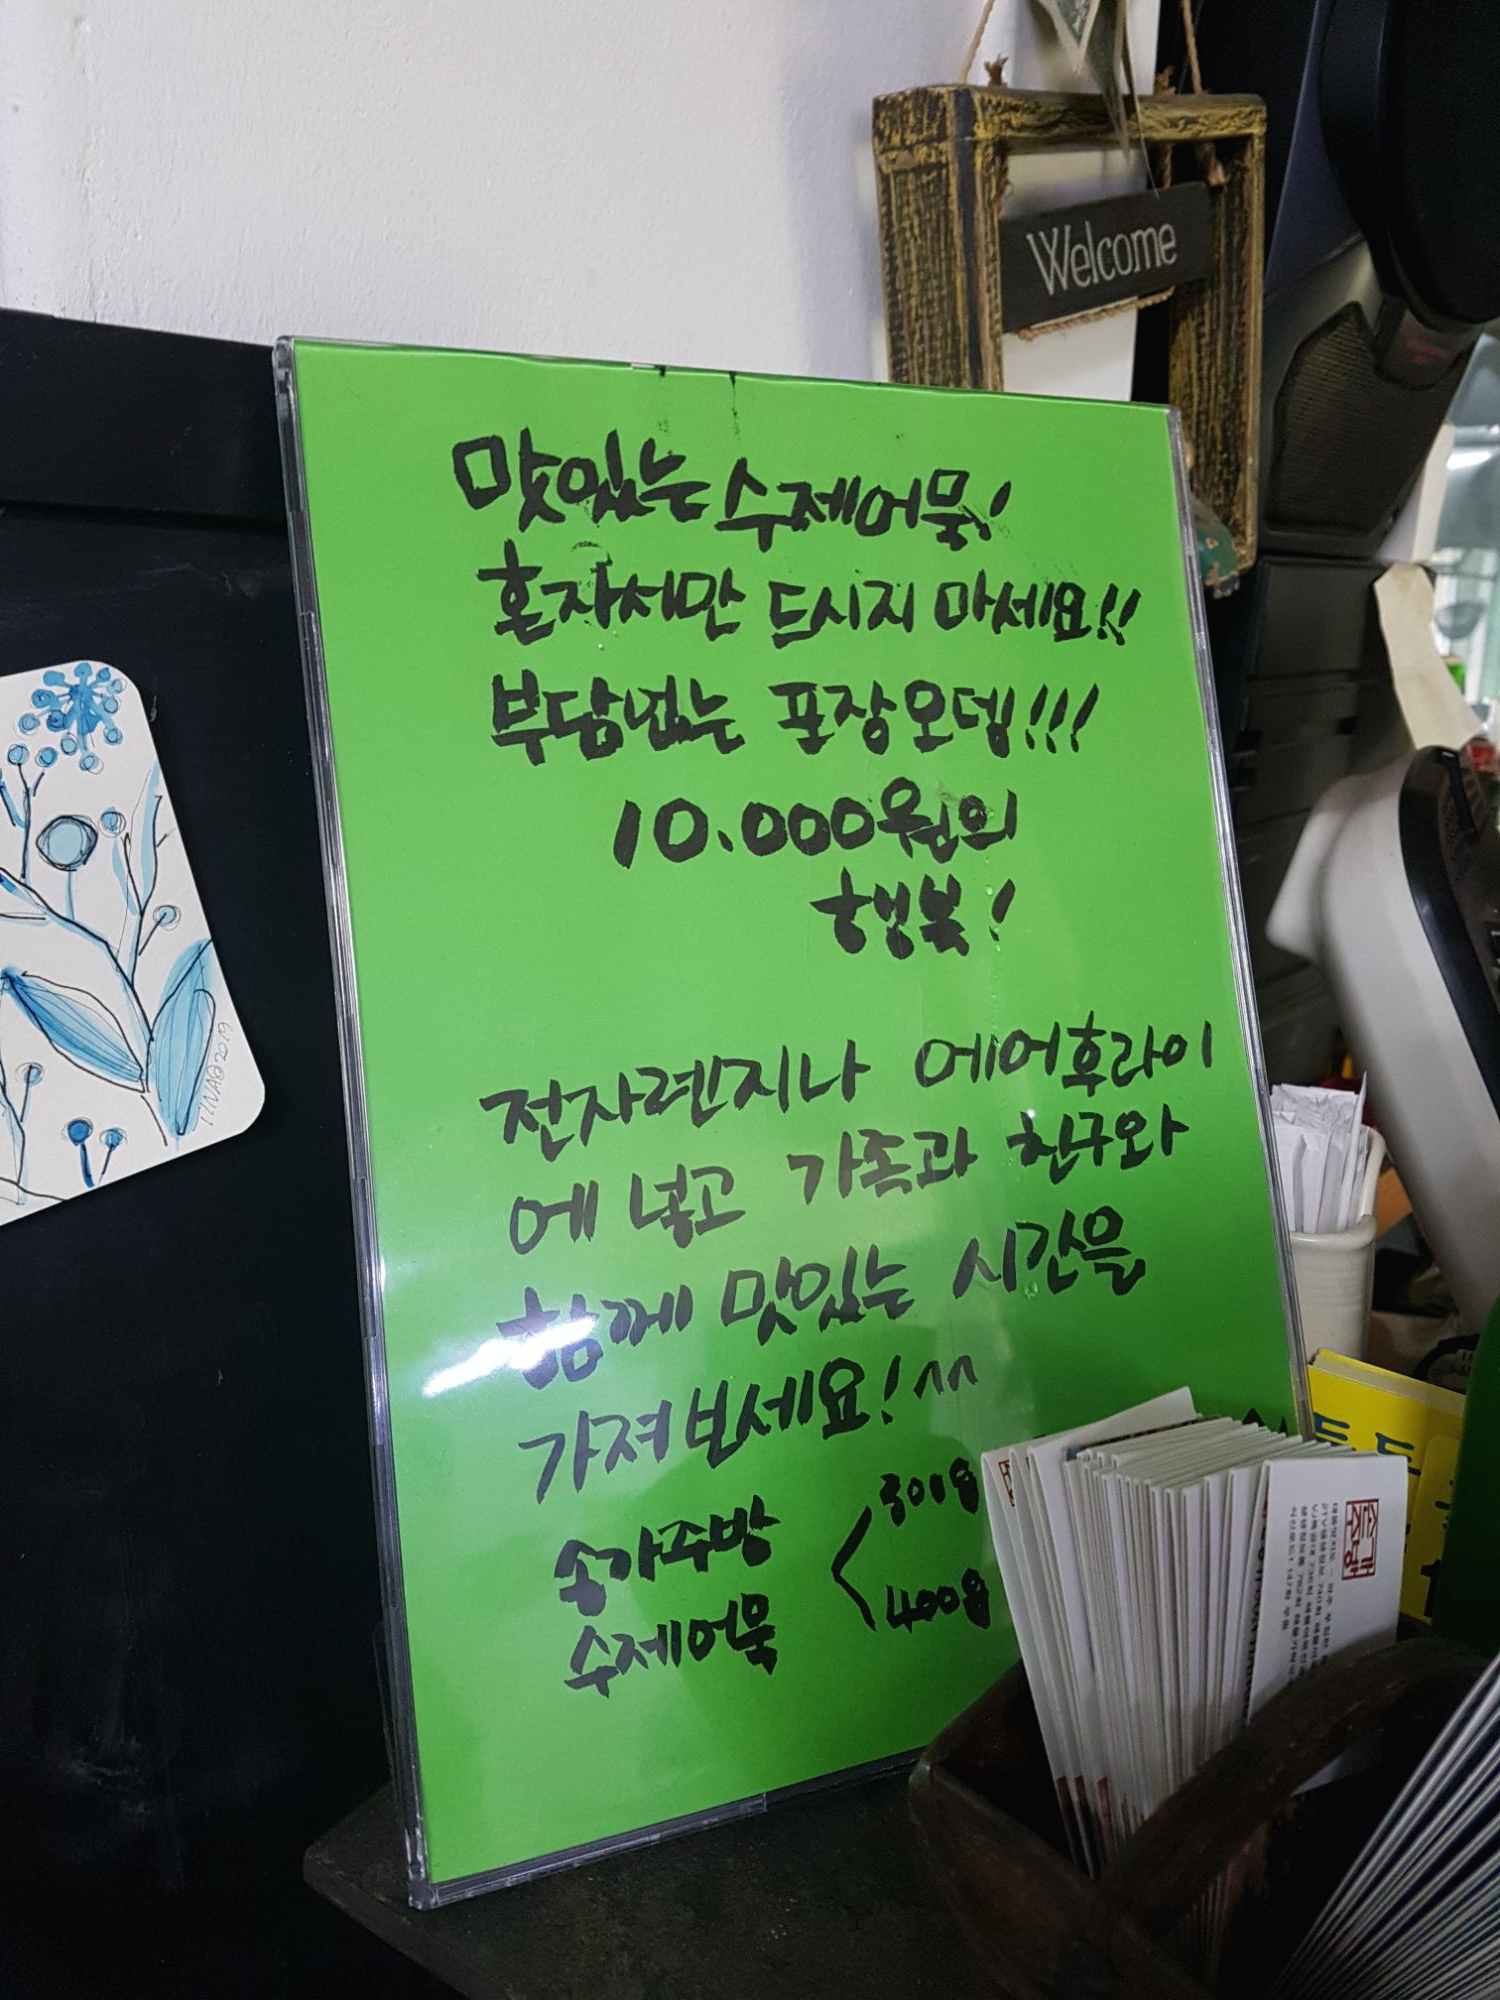 Welcome
맛있는 수제어묵!
혼자서만 드시지 마세요!!
부담없는 포장오뎅!!!
10.000원의
행복!
전자렌지나 에어후라이
에 넣고 가족과 친구와
함께 맛있는 시간을
가져보세요! ^^
송가주방
수제어묵
< 300g
400g
2019